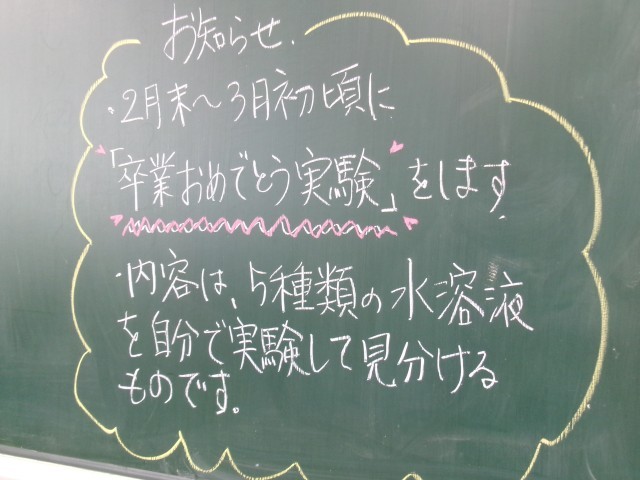 お知らせ.
・2月末～3月初頃に
「卒業おめでとう実験」をします
・内容は、5種類の水溶液
を自分で実験して見分ける
ものです。